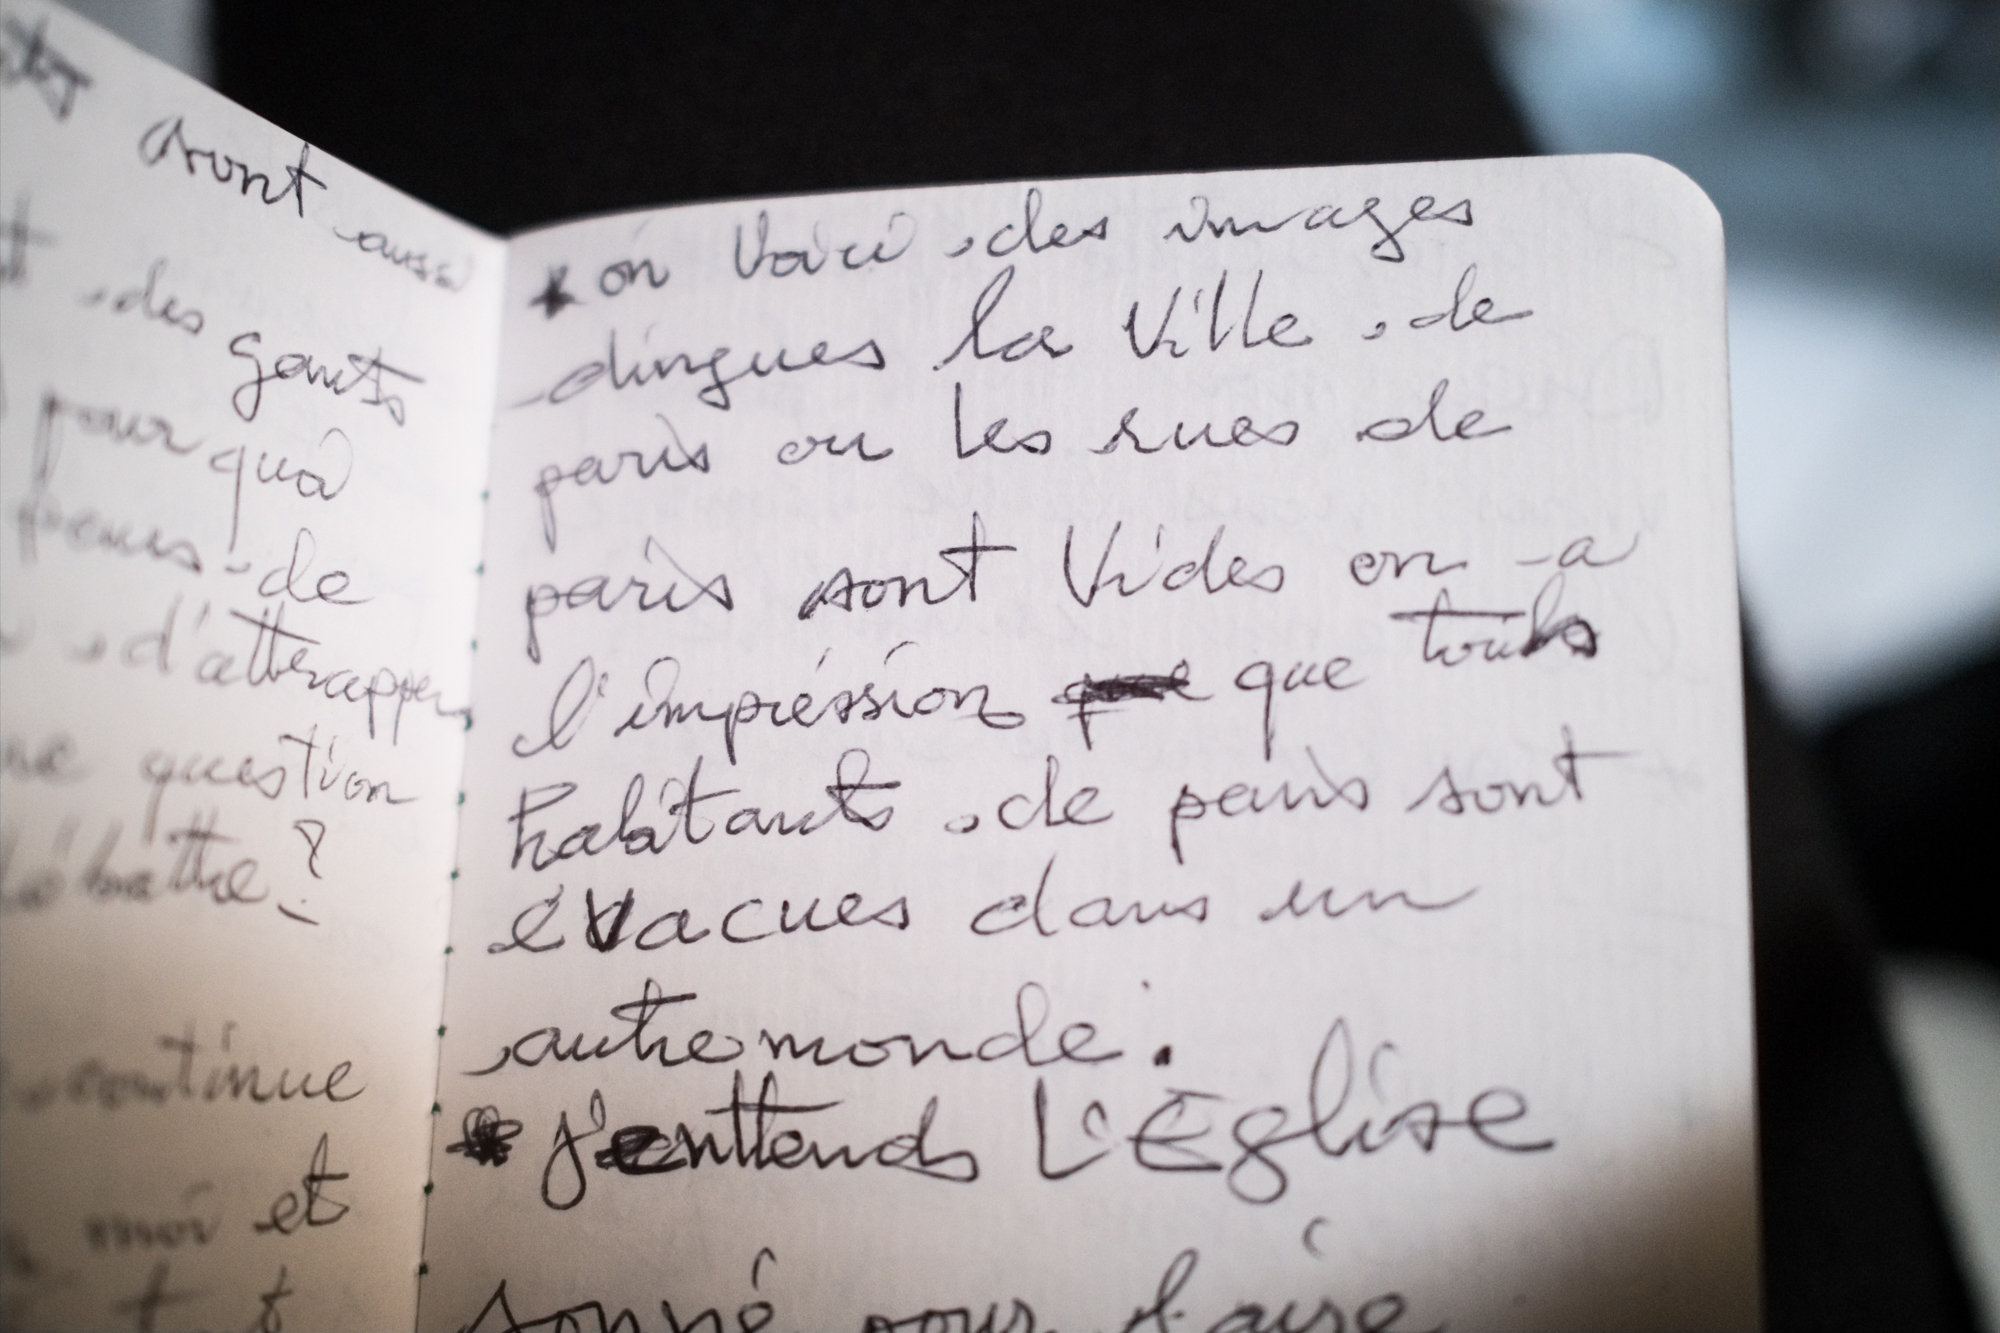 avont aussi
des gants
pourquoi
peurs de
d'attrapper
question
débattre?
continue
moi et
* on voici des images
dingues la ville de
paris ou les rues de
paris sont vides on a
l'impréssion que que touts
habitants de paris sont
évacues dans un
autre monde.
* j'enttends L'Eglise
sonné pour faire